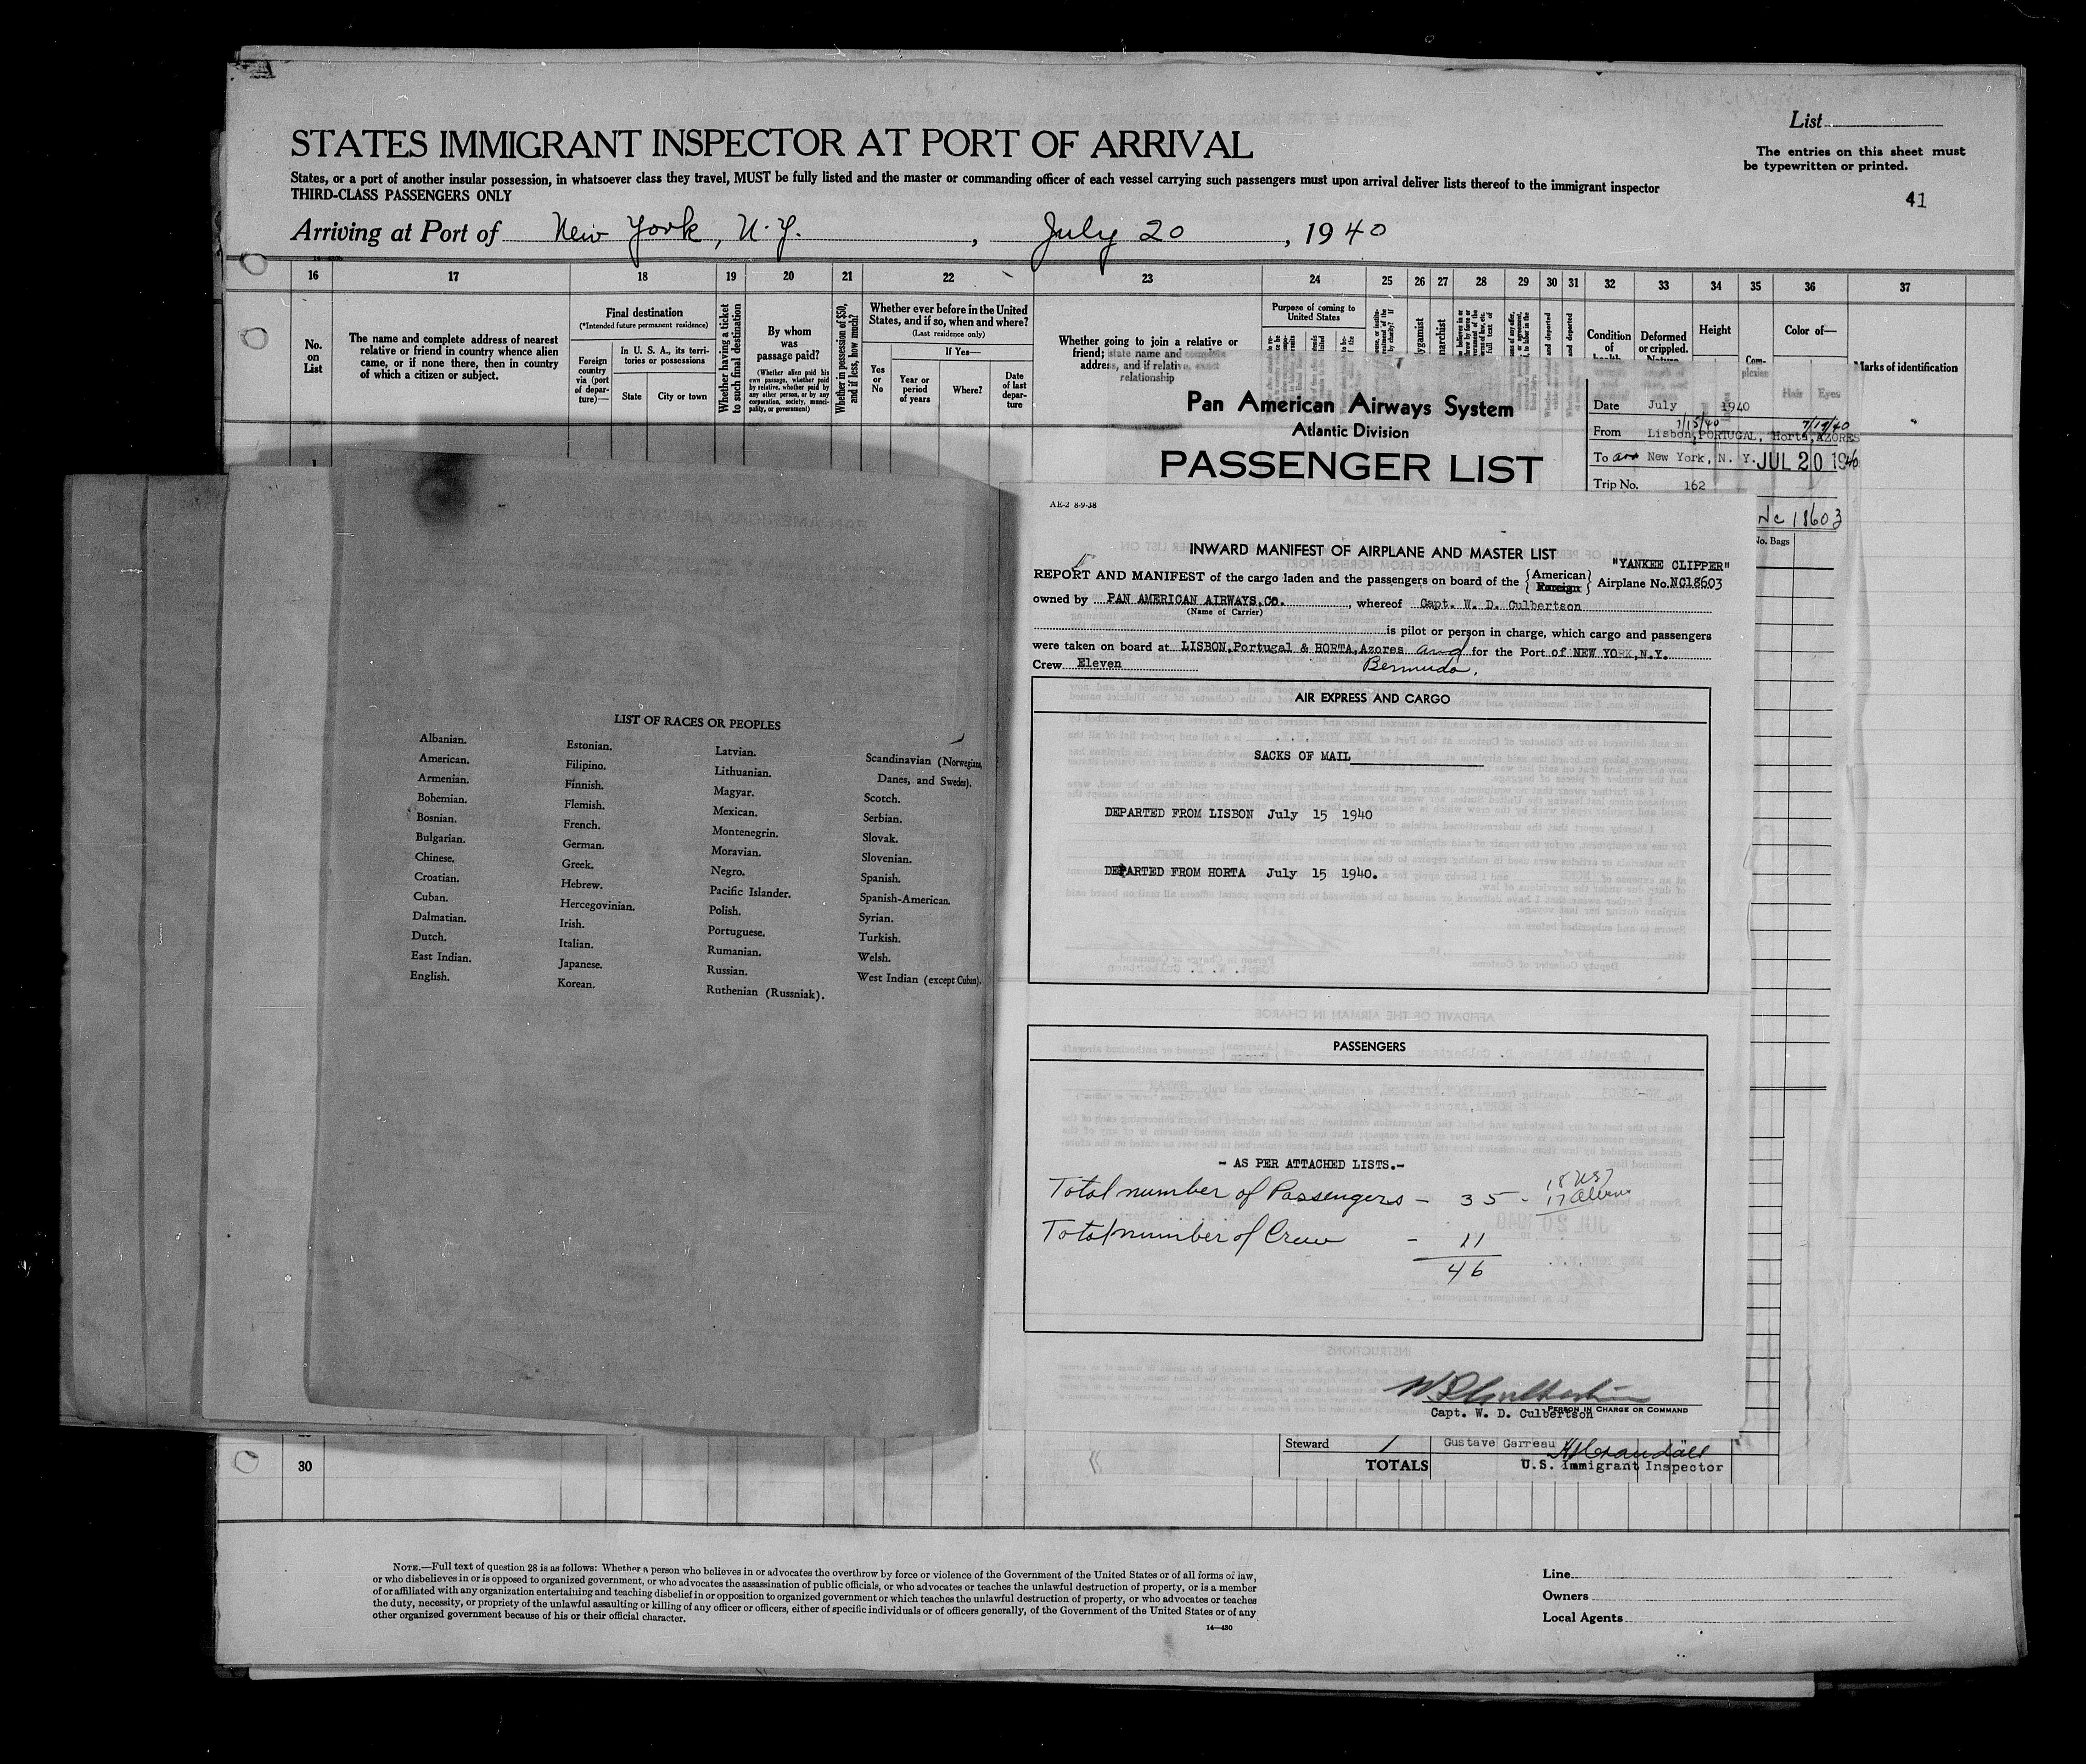 List
The entries on this sheet must
be typewritten or printed.
41
STATES IMMIGRANT INSPECTOR AT PORT OF ARRIVAL
States, or a port of another insular possession, in whatsoever class they travel, MUST be fully listed and the master or commanding officer of each vessel carrying such passengers must upon arrival deliver lists thereof to the immigrant inspector
THIRD-CLASS PASSENGERS ONLY
Arriving at Port of New York, N.Y. , July 20 , 1940
16 17 18 19 20 21 22 23 24 25 26 27 28 29 30 31 32 33 34 35 36 37
No.
on
List
The name and complete address of nearest
relative or friend in country whence alien
came, or if none there, then in country
of which a citizen or subject.
Final destination
(*Intended future permanent residence)
Foreign
country
via (port
of depar-
ture)—
In U. S. A., its terri-
tories or possessions
State
City or town
Whether having a ticket
to such final destination
By whom
was
passage paid?
(Whether alien paid his
own passage, whether paid
by relative, whether paid by
any other person, or by any
corporation, society, munici-
pality, or government)
Whether in possession of $50,
and if less, how much?
Whether ever before in the United
States, and if so, when and where?
(Last residence only)
If Yes—
Yes
or
No
Year or
period
of years
Where?
Date
of last
depar-
ture
Whether going to join a relative or
friend; state name and complete
address, and if relative, exact
relationship
Purpose of coming to
United States
Condition
of
Deformed
or crippled.
Height
Com-
plexion
Color of—
Hair Eyes
Marks of identification
Pan American Airways System
Atlantic Division
PASSENGER LIST
Date July 1940
7/15/40 7/19/40
From Lisbon, PORTUGAL, Horta, AZORES
To arr New York, N. Y. JUL 20 1940
Trip No. 162
Nc 18603
No. Bags
AE-2 8-9-38
INWARD MANIFEST OF AIRPLANE AND MASTER LIST
"YANKEE CLIPPER"
REPORT AND MANIFEST of the cargo laden and the passengers on board of the {American Foreign} Airplane No. NC18603
owned by PAN AMERICAN AIRWAYS, CO. , whereof Capt. W. D. Culbertson
(Name of Carrier)
is pilot or person in charge, which cargo and passengers
were taken on board at LISBON, Portugal & HORTA, Azores and for the Port of NEW YORK, N.Y.
Crew Eleven Bermuda.
AIR EXPRESS AND CARGO
SACKS OF MAIL
DEPARTED FROM LISBON July 15 1940
DEPARTED FROM HORTA July 15 1940.
PASSENGERS
- AS PER ATTACHED LISTS.-
18 US
Total number of Passengers - 35 - 17 Aliens
Total number of Crew - 11
46
PERSON IN CHARGE OR COMMAND
Capt. W. D. Culbertson
Steward 1 Gustave Garreau
TOTALS U.S. Immigrant Inspector
LIST OF RACES OR PEOPLES
Albanian.
American.
Armenian.
Bohemian.
Bosnian.
Bulgarian.
Chinese.
Croatian.
Cuban.
Dalmatian.
Dutch.
East Indian.
English.
Estonian.
Filipino.
Finnish.
Flemish.
French.
German.
Greek.
Hebrew.
Hercegovinian.
Irish.
Italian.
Japanese.
Korean.
Latvian.
Lithuanian.
Magyar.
Mexican.
Montenegrin.
Moravian.
Negro.
Pacific Islander.
Polish.
Portuguese.
Rumanian.
Russian.
Ruthenian (Russniak).
Scandinavian (Norwegians,
Danes, and Swedes).
Scotch.
Serbian.
Slovak.
Slovenian.
Spanish.
Spanish-American.
Syrian.
Turkish.
Welsh.
West Indian (except Cuban).
30
NOTE.—Full text of question 28 is as follows: Whether a person who believes in or advocates the overthrow by force or violence of the Government of the United States or of all forms of law,
or who disbelieves in or is opposed to organized government, or who advocates the assassination of public officials, or who advocates or teaches the unlawful destruction of property, or is a member
of or affiliated with any organization entertaining and teaching disbelief in or opposition to organized government or which teaches the unlawful destruction of property, or who advocates or teaches
the duty, necessity, or propriety of the unlawful assaulting or killing of any officer or officers, either of specific individuals or of officers generally, of the Government of the United States or of any
other organized government because of his or their official character.
14—430
Line
Owners
Local Agents